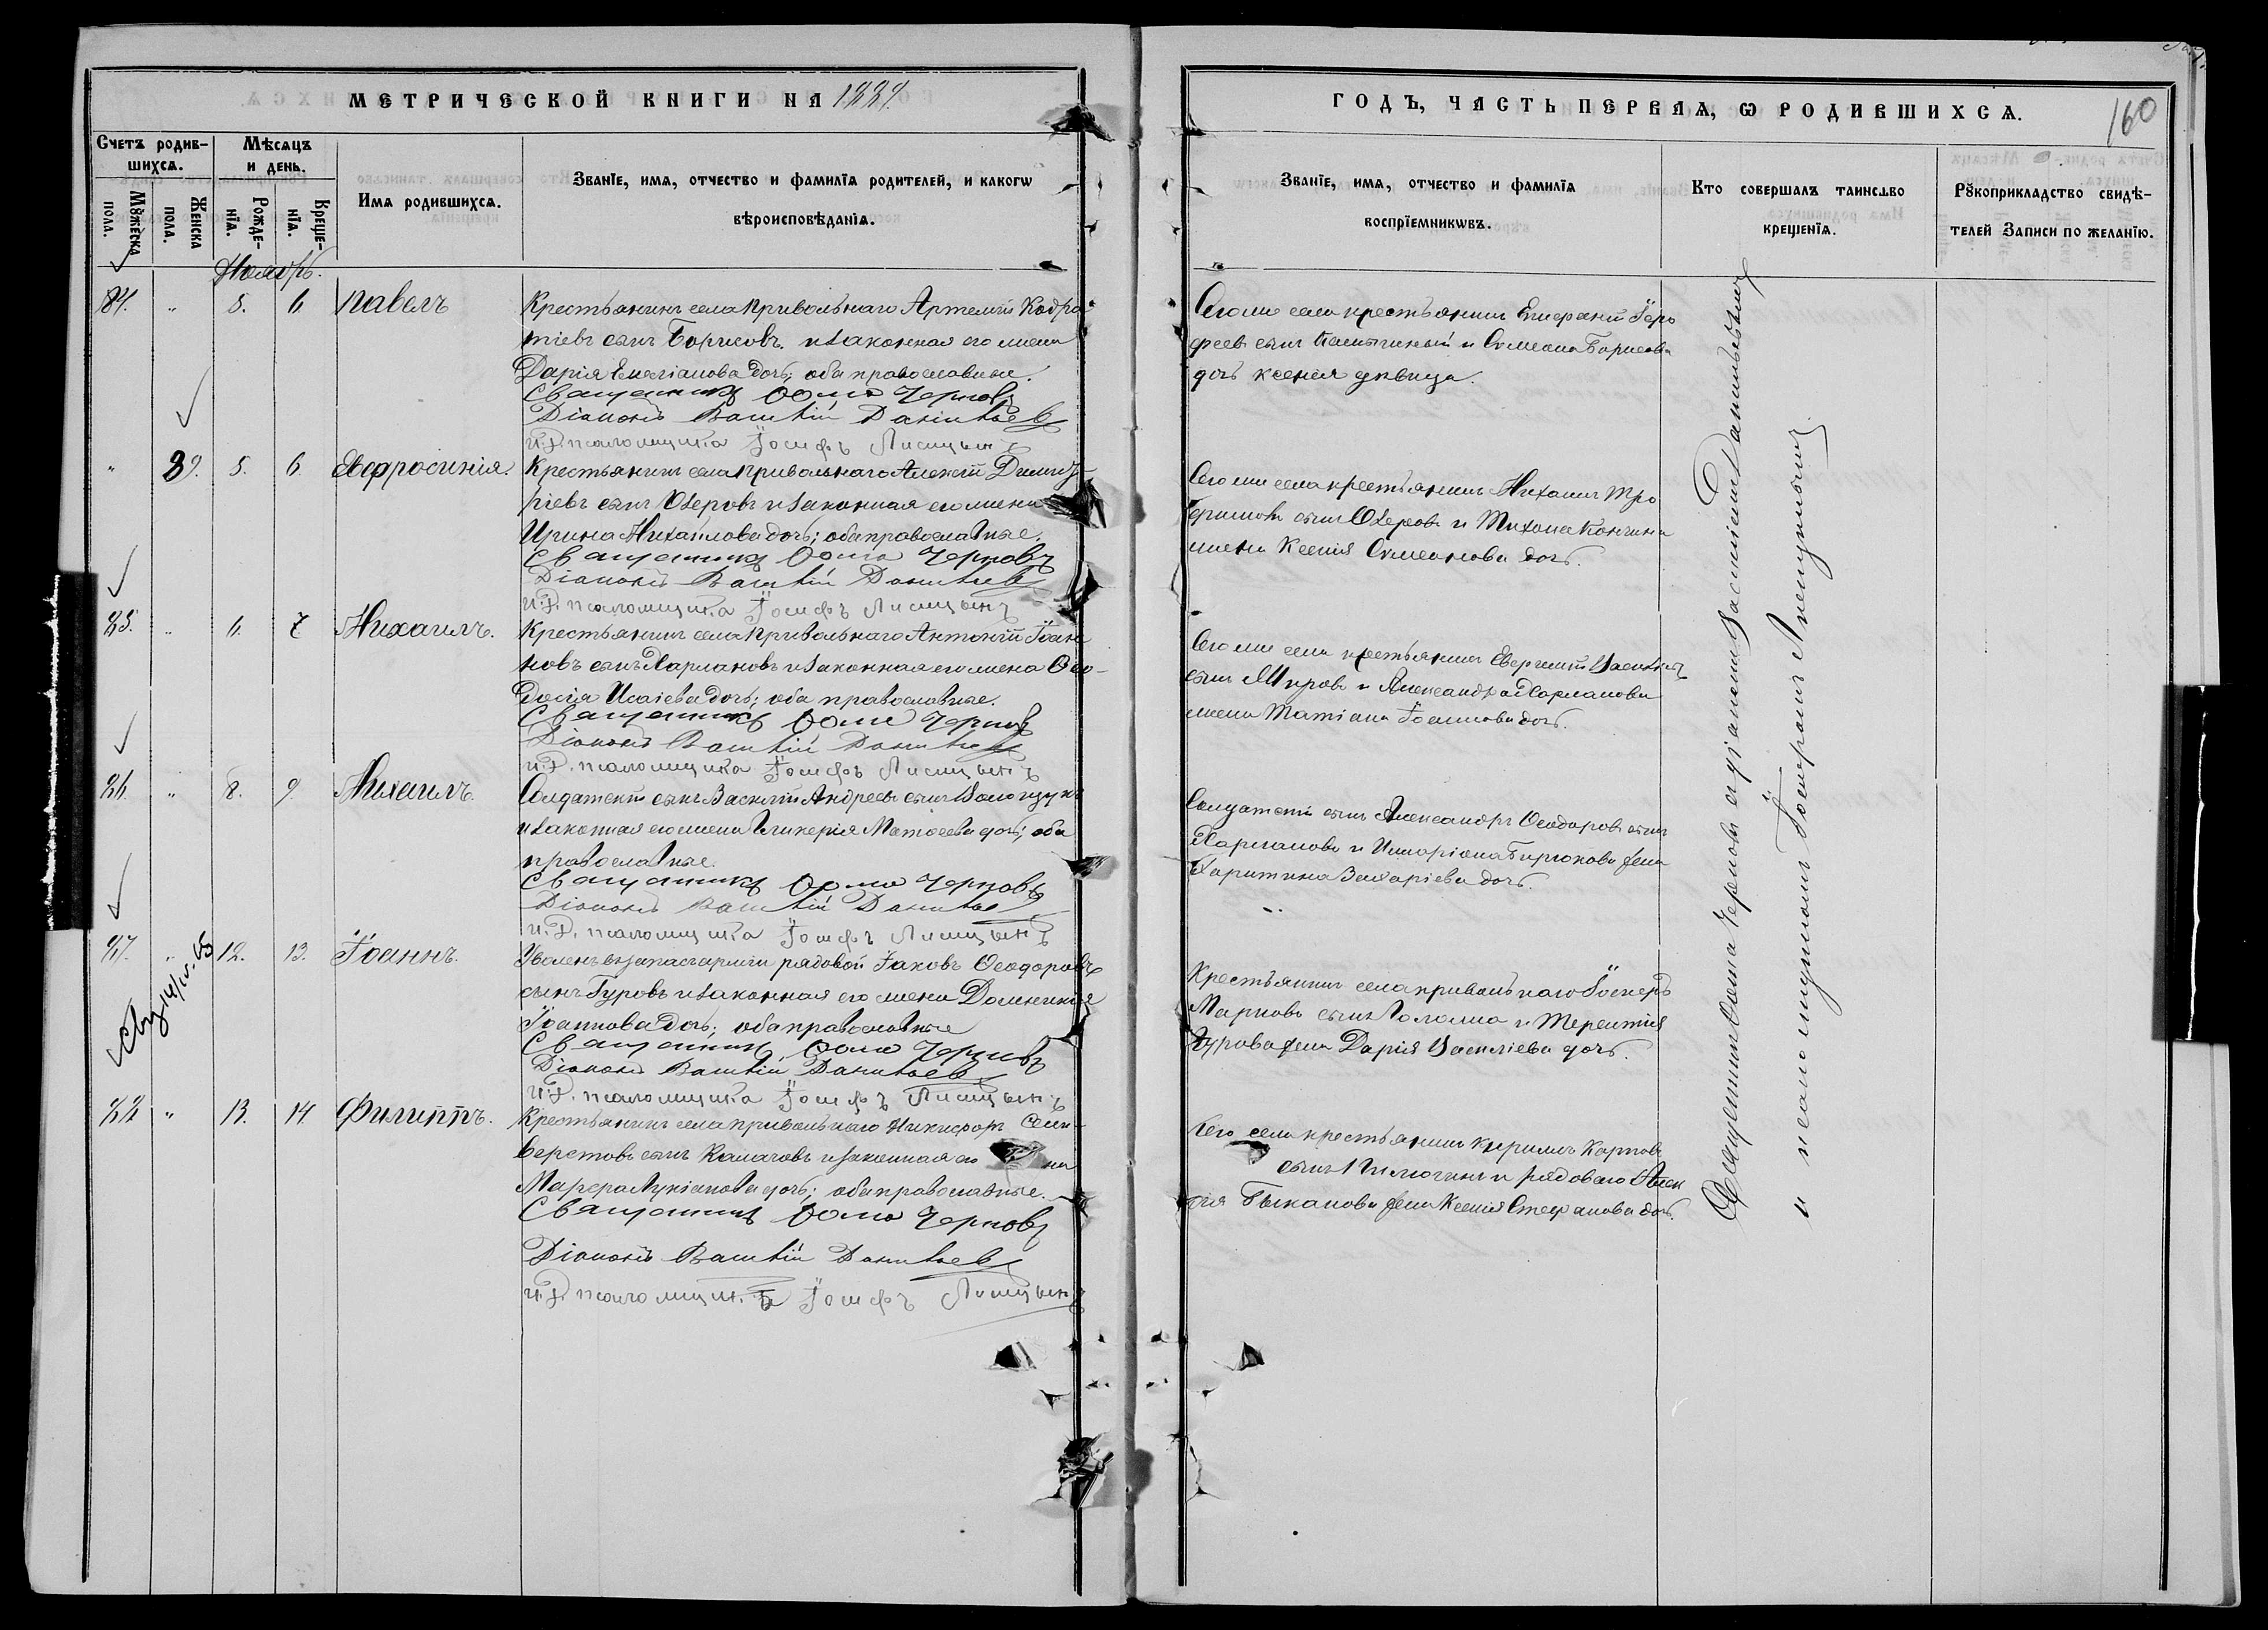 МЕТРИЧЕСКОЙ КНИГИ НА 1884.
ГОДЪ, ЧАСТЬ ПЕРВАЯ, Ѡ РОДИВШИХСЯ.
160
Счетъ родив-
шихся.
Мѣсяцъ
и день.
Имя родившихся.
Званїе, имя, отчество и фамилїя родителей, и какогѡ
вѣроисповѣданїя.
Мꙋжеска
пола.
Женска
пола.
Рожде-
нїя.
Креще-
нїя.
Званїе, имя, отчество и фамилїя
воспрїемникѡвъ.
Кто совершалъ таинство
крещенїя.
Рꙋкоприкладство свидѣ-
телей записи по желанїю.
Ноябрь.
84. " 5. 6. Павелъ
Крестьянинъ села Привольнаго Артемій Кодра-
тіевъ сынъ Борисовъ и законная его жена
Дарія Емеліанова дочь; оба православные.
Священникъ Ѳома Черновъ
Діаконъ Василій Данильевъ
И.Д. псаломщика Іосифъ Липицынъ
Сего же села крестьянинъ Епифаній Іеро
феевъ сынъ и Симеона Борисова
дочь Ксенія девица.
" 39. 5. 6. Евфросинія.
Крестьянинъ села Привольнаго Алексій Димит-
ріевъ сынъ Озеровъ и законная его жена
Ирина Михаилова дочь; оба православные.
Священникъ Ѳома Черновъ
Діаконъ Василій Данильевъ
И.Д. псаломщика Іосифъ Липицынъ
Сего же села крестьянинъ Михаилъ Тро
фимовъ сынъ Озеровъ и Тихона Кончина
жена Ксенія Симеонова дочь.
85. " 6. 7. Михаилъ.
Крестьянинъ села Привольнаго Антоній Іоан-
новъ сынъ Харламовъ и законная его жена Ѳео-
досія Исаіева дочь; оба православные.
Священникъ Ѳома Черновъ
Діаконъ Василій Данильевъ
И.Д. псаломщика Іосифъ Липицынъ
Сего же села крестьянинъ
сынъ и Александра Харламова
жена Татіана Іоаннова дочь.
86. " 8. 9. Михаилъ.
Солдатскій сынъ Василій Андреевъ сынъ
и законная его жена Гликерія Матѳеева дочь; оба
православные.
Священникъ Ѳома Черновъ
Діаконъ Василій Данильевъ
И.Д. псаломщика Іосифъ Липицынъ
Солдатскій сынъ Александръ Ѳеодоровъ сынъ
Харламовъ и Иларіона Бирюкова жена
Харитина Захаріева дочь.
87. " 12. 13. Іоаннъ.
Уволенъ въ запасъ арміи рядовой Іаковъ Ѳеодоровъ
сынъ Гуровъ и законная его жена Домникія
Іоаннова дочь; оба православные
Священникъ Ѳома Черновъ
Діаконъ Василій Данильевъ
И.Д. псаломщика Іосифъ Липицынъ
Крестьянинъ села Привольнаго
Марковъ сынъ и Терентія
Гурова жена Дарія Василіева дочь.
88 " 13. 14. Филиппъ.
Крестьянинъ села Привольнаго Никифоръ Сели-
верстовъ сынъ Калачовъ и законная его
Марѳа Лукіанова дочь; оба православные.
Священникъ Ѳома Черновъ
Діаконъ Василій Данильевъ
И.Д. псаломщика Іосифъ Липицынъ
Сего села крестьянинъ Кириллъ Карповъ
сынъ Пилюгинъ и рядоваго Алек
сія Быканова жена Ксенія Стефанова дочь.
Священникъ Ѳома Черновъ съ діакономъ Василіемъ Данильевымъ
и псаломщикомъ Іосифомъ Липицынымъ